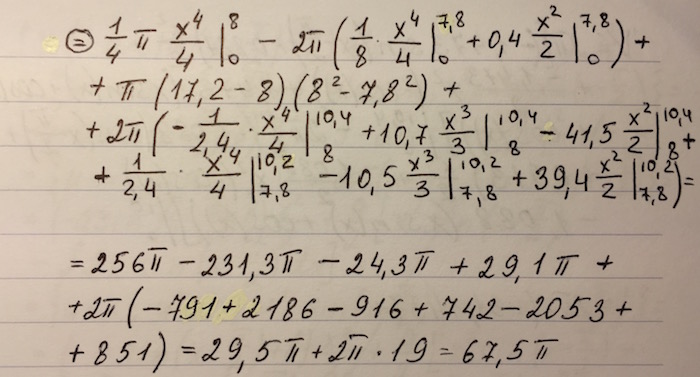 = 1/4 π x⁴/4 |₀⁸ − 2π(1/8 · x⁴/4 |₀^7,8 + 0,4 x²/2 |₀^7,8) +
+ π (17,2 − 8)(8² − 7,8²) +
+ 2π(− 1/2,4 · x⁴/4 |₈^10,4 + 10,7 x³/3 |₈^10,4 − 41,5 x²/2 |₈^10,4 +
+ 1/2,4 · x⁴/4 |_7,8^10,2 − 10,5 x³/3 |_7,8^10,2 + 39,4 x²/2 |_7,8^10,2) =
= 256π − 231,3π − 24,3π + 29,1π +
+ 2π(− 791 + 2186 − 916 + 742 − 2053 +
+ 851) = 29,5π + 2π · 19 = 67,5π